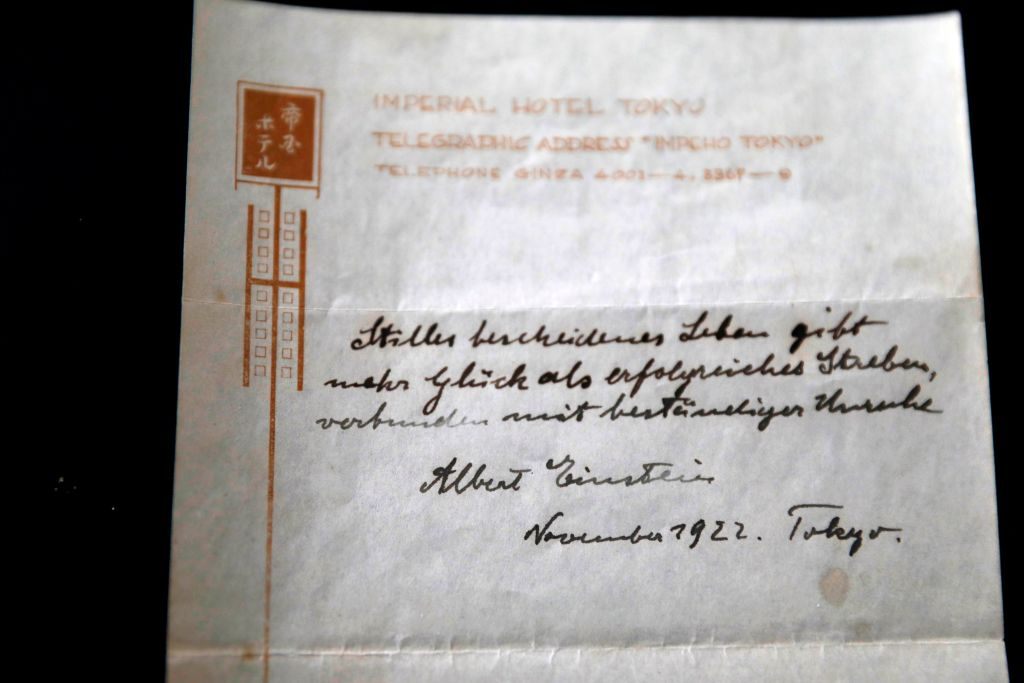 帝国
ホテル
IMPERIAL HOTEL TOKYO
TELEGRAPHIC ADDRESS "IMPEHO TOKYO"
TELEPHONE GINZA 4001—4, 3368—9
Stilles bescheidenes Leben gibt
mehr Glück als erfolgreiches Streben,
verbunden mit beständiger Unruhe
Albert Einstein
November 1922. Tokyo.